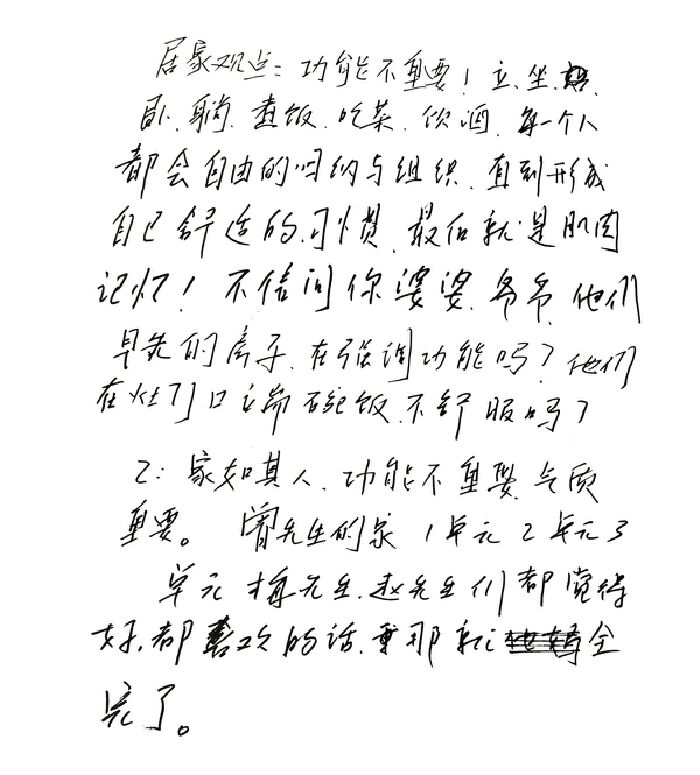 居家观点:功能不重要!立.坐.
卧、躺、煮饭、吃菜、饮酒,每一个人
都会自由的归纳与组织,直到形成
自己舒适的习惯,最后就是肌肉
记忆!不信问你婆婆、爷爷,他们
早先的房子、在强调功能吗?他们
在灶门口立端碗饭,不舒服吗?
2:家如其人、功能不重要,气质
重要。曾先生的家1单元2单元3
单元 梅先生、赵先生们都觉得
好,都喜欢的话,那就全
完了。